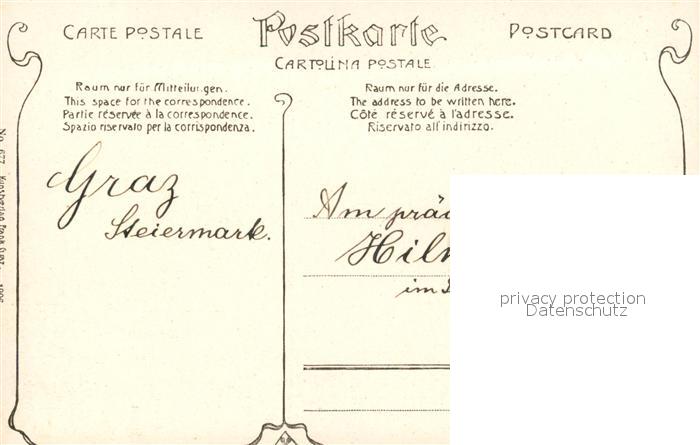 CARTE POSTALE Postkarte POSTCARD
CARTOLINA POSTALE
Raum nur für Mitteilungen.
This space for the correspondence.
Partie réservée à la correspondence.
Spazio riservato per la corrispondenza.
Raum nur für die Adresse.
The address to be written here.
Côté réservé à l'adresse.
Riservato all' indirizzo.
Graz
Steiermark.
Am
im
privacy protection
Datenschutz
No. 677
1906